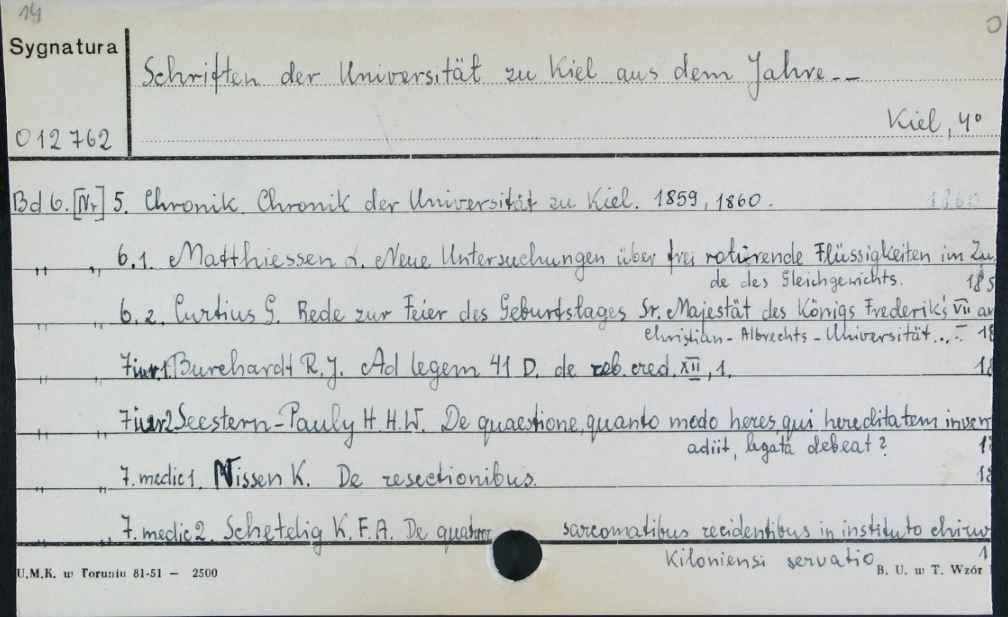 14
Sygnatura
Schriften der Universität zu Kiel aus dem Jahre --
Kiel, 4º
012762
Bd 6. [Nr] 5. Chronik. Chronik der Universität zu Kiel. 1859, 1860.
" " 6.1. Matthiessen L. Neue Untersuchungen über frei rotirende Flüssigkeiten im Zu
de des Gleichgewichts. 185
" " 6.2. Curtius G. Rede zur Feier des Geburtstages Sr. Majestät des Königs Frederik's VII an
Christian-Albrechts-Universität... 18
" " 7 iur.1. Burchardt R.J. Ad legem 41 D. de reb. cred. XII, 1. 18
" " 7 iur2 Seestern-Pauly H.H.W. De quaestione, quanto modo heres qui hereditatem inven
adiit, legata debeat? 18
" " 7. medic1. Nissen K. De resectionibus. 18
" " 7. medic2. Schetelig K.F.A. De sarcomatibus recidentibus in instituto chirur
Kiloniensi servatio 1
U.M.K. w Toruniu 81-51 — 2500
B. U. w T. Wzór